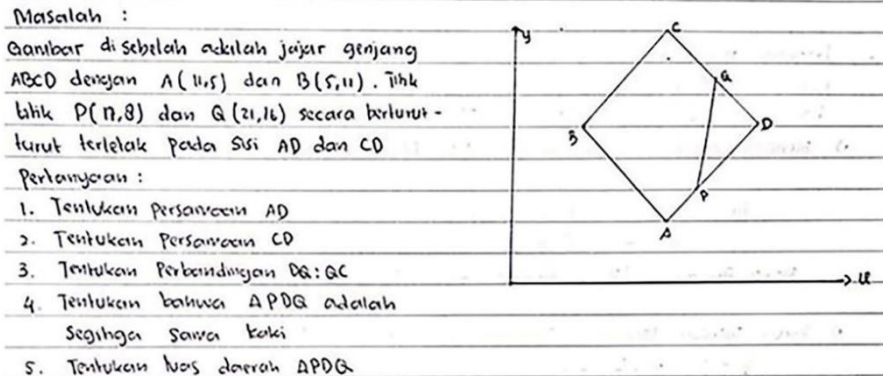 Masalah :
Gambar di sebelah adalah jajar genjang
ABCD dengan A(11,5) dan B(5,11). Titik
titik P(17,8) dan Q(21,16) secara berturut-
turut terletak pada sisi AD dan CD
Pertanyaan :
1. Tentukan Persamaan AD
2. Tentukan Persamaan CD
3. Tentukan Perbandingan DQ:QC
4. Tentukan bahwa ΔPDQ adalah
Segitiga sama kaki
5. Tentukan luas daerah ΔPDQ
y
C
Q
B
D
P
A